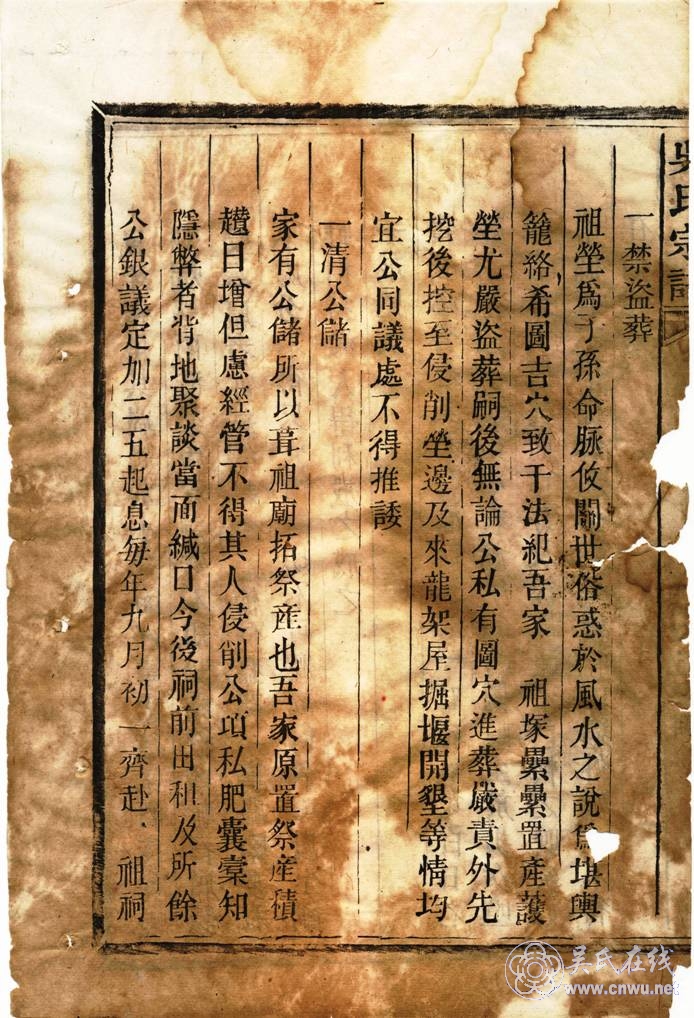 吳氏宗譜
一禁盜葬
祖塋爲子孫命脉攸關世俗惑於風水之說爲堪輿
籠絡希圖吉穴致干法紀吾家　祖塚纍纍置產護
塋尤嚴盜葬嗣後無論公私有圖穴進葬嚴責外先
挖後控至侵削塋邊及來龍架屋掘堰開墾等情均
宜公同議處不得推諉
一清公儲
家有公儲所以葺祖廟拓祭產也吾家原置祭產積
趲日增但慮經管不得其人侵削公項私肥囊槖知
隱弊者背地聚談當面緘口今後祠前田租及所餘
公銀議定加二五起息每年九月初一齊赴、祖祠
吴氏在线
www.cnwu.net